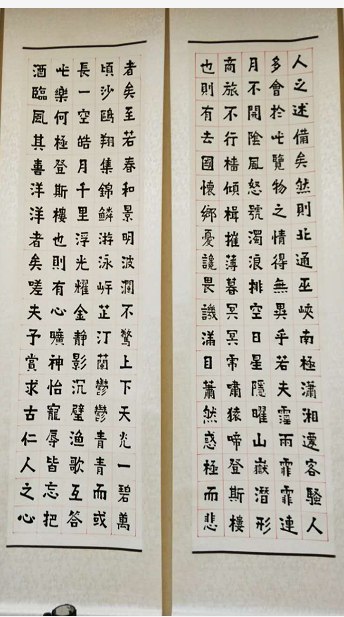 人之述備矣然則北通巫峽南極瀟湘遷客騷人
多會於此覽物之情得無異乎若夫霪雨霏霏連
月不開陰風怒號濁浪排空日星隱曜山嶽潛形
商旅不行檣傾楫摧薄暮冥冥虎嘯猿啼登斯樓
也則有去國懷鄉憂讒畏譏滿目蕭然感極而悲
者矣至若春和景明波瀾不驚上下天光一碧萬
頃沙鷗翔集錦鱗游泳岸芷汀蘭鬱鬱青青而或
長一空皓月千里浮光耀金靜影沉璧漁歌互答
此樂何極登斯樓也則有心曠神怡寵辱皆忘把
酒臨風其喜洋洋者矣嗟夫予嘗求古仁人之心